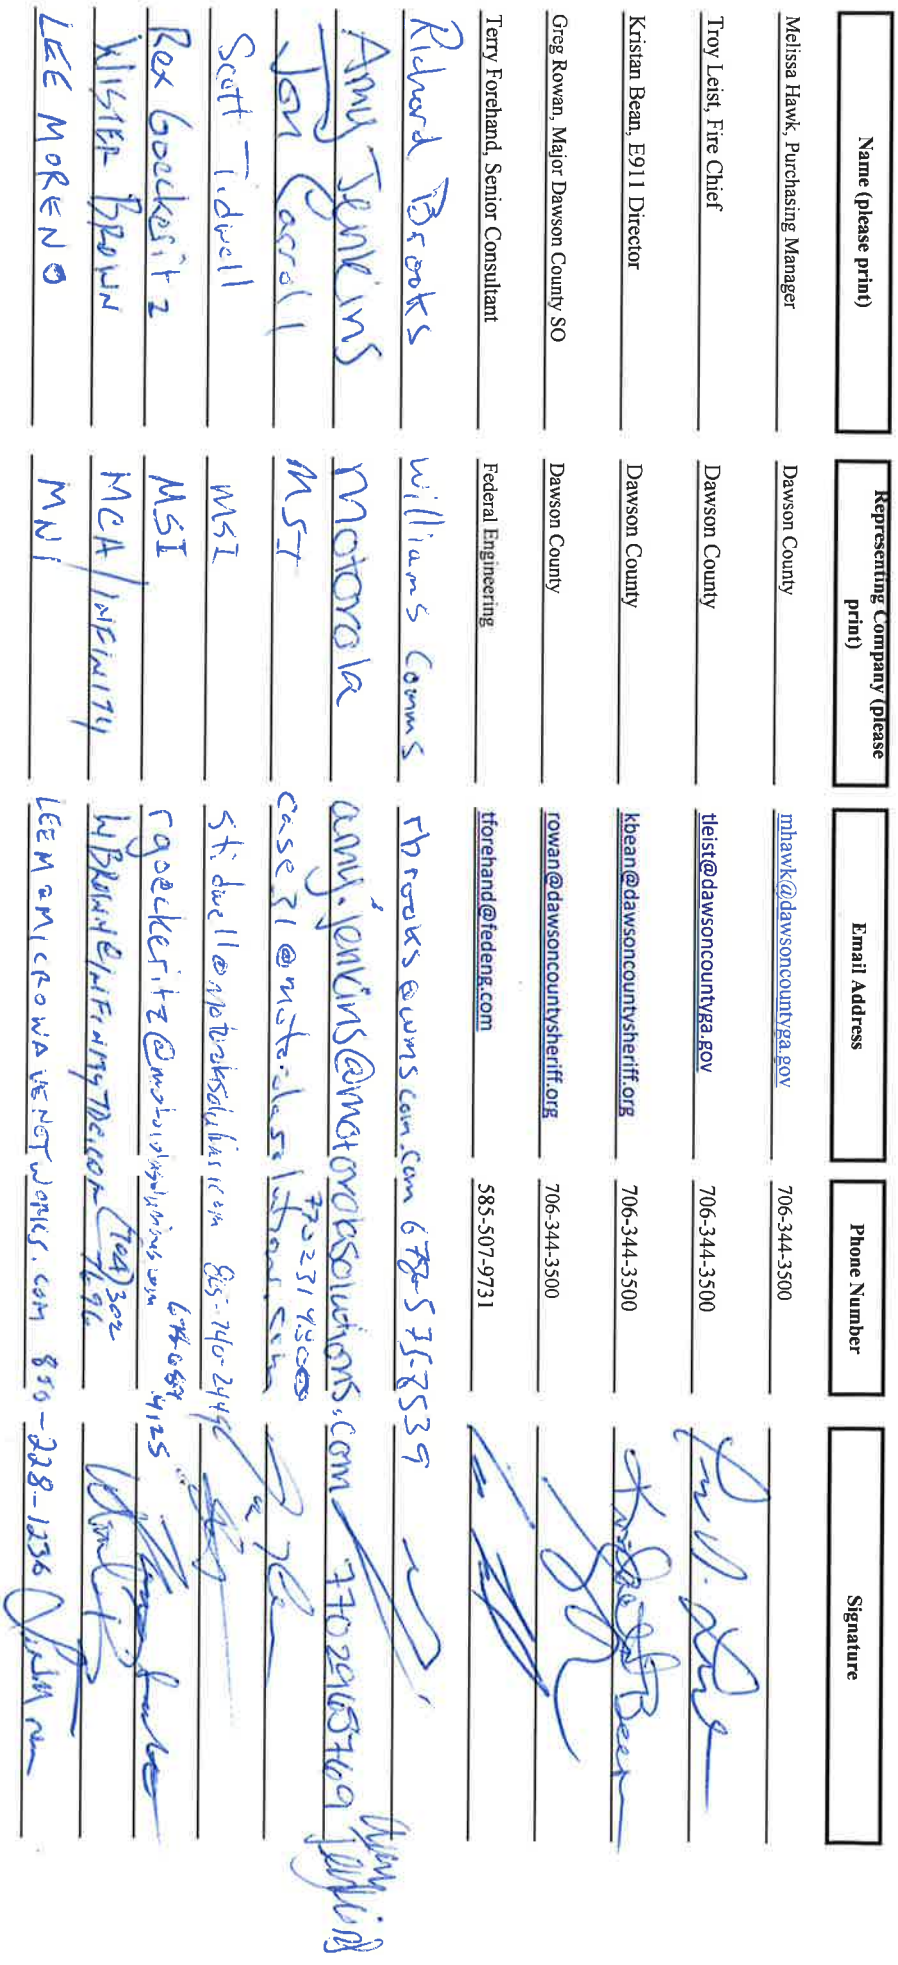 Name (please print) Representing Company (please print) Email Address Phone Number Signature
Melissa Hawk, Purchasing Manager Dawson County mhawk@dawsoncountyga.gov 706-344-3500
Troy Leist, Fire Chief Dawson County tleist@dawsoncountyga.gov 706-344-3500
Kristan Bean, E911 Director Dawson County kbean@dawsoncountysheriff.org 706-344-3500
Greg Rowan, Major Dawson County SO Dawson County rowan@dawsoncountysheriff.org 706-344-3500
Terry Forehand, Senior Consultant Federal Engineering tforehand@fedeng.com 585-507-9731
Richard Brooks Williams Comms rbrooks@wmscom.com 678-575-7539
Amy Jenkins Motorola amy.jenkins@motorolasolutions.com 7702965769 Amy Jenkins
Jon Carroll MSI case31@motorolasolutions.com
Scott Tidwell MSI stidwell@motorolasolutions.com
Rex Goeckeritz MSI rgoeckeritz@motorolasolutions.com
WISTER BROWN MCA/INFINITY (404) 302 7696
LEE MORENO MNI LEEM@MICROWAVENETWORKS.COM 850-228-1236